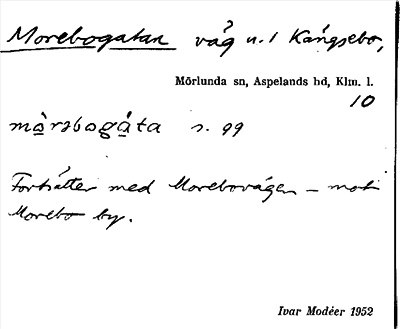 Morebogatan väg n.1 Kängsebo,
Mörlunda sn, Aspelands hd, Klm. l.
10
mòrəbogáta s. 99
Fortsätter med Morebovägen – mot
Morebo by.
Ivar Modéer 1952